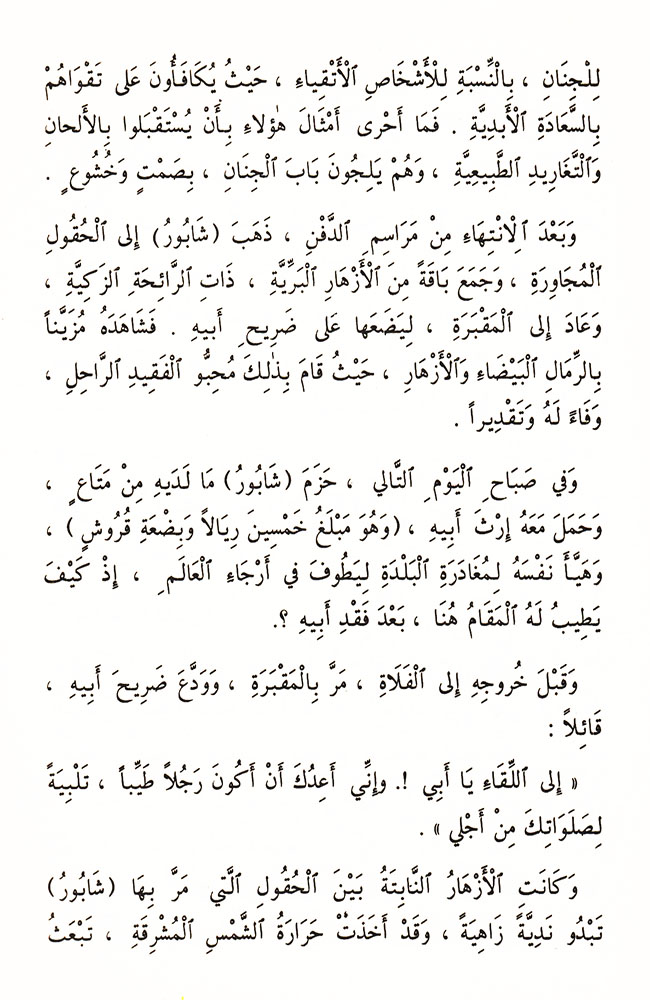 لِلْجِنَانِ ، بِالنِّسْبَةِ لِلْأَشْخَاصِ ٱلْأَتْقِيَاءِ ، حَيْثُ يُكَافَأُونَ عَلى تَقْوَاهُمْ
بِالسَّعَادَةِ ٱلْأَبَدِيَّةِ . فَمَا أَحْرى أَمْثَالَ هٰؤلاءِ بِأَنْ يُسْتَقْبَلوا بِالأَلحانِ
وَٱلْتَّغَارِيدِ ٱلطَّبِيعِيَّةِ ، وَهُمْ يَلِجُونَ بَابَ ٱلْجِنَانِ ، بِصَمْتٍ وَخُشُوعٍ .
وَبَعْدَ ٱلِٱنْتِهَاءِ مِنْ مَرَاسِمِ ٱلدَّفْنِ ، ذَهَبَ (شَابُورُ) إِلى ٱلْحُقُولِ
ٱلْمُجَاوِرَةِ ، وَجَمَعَ بَاقَةً مِنَ ٱلْأَزْهَارِ ٱلْبَرِّيَّةِ ، ذَاتِ ٱلرَّائِحَةِ ٱلزَّكِيَّةِ ،
وَعَادَ إِلى ٱلْمَقْبَرَةِ ، لِيَضَعَها عَلى ضَرِيحِ أَبيهِ . فَشَاهَدَهُ مُزَيَّناً
بِالرِّمَالِ ٱلْبَيْضَاءِ وَٱلْأَزْهَارِ ، حَيْثُ قَامَ بِذٰلِكَ مُحِبُّو ٱلْفَقِيدِ ٱلرَّاحِلِ ،
وَفَاءً لَهُ وَتَقْدِيراً .
وَفي صَبَاحِ ٱلْيَوْمِ ٱلتَّالي ، حَزَمَ (شَابُورُ) مَا لَدَيهِ مِنْ مَتَاعٍ ،
وَحَمَلَ مَعَهُ إِرْثَ أَبِيهِ ، (وَهُوَ مَبْلَغُ خَمْسِينَ رِيَالاً وَبِضْعَةِ قُرُوشٍ) ،
وَهَيَّأَ نَفْسَهُ لِمُغَادَرَةِ ٱلْبَلْدَةِ لِيَطُوفَ في أَرْجَاءِ ٱلْعَالَمِ ، إِذْ كَيْفَ
يَطِيبُ لَهُ ٱلْمَقَامُ هُنَا ، بَعْدَ فَقْدِ أَبِيهِ ؟.
وَقَبْلَ خُروجِهِ إِلى ٱلْفَلَاةِ ، مَرَّ بِالْمَقْبَرَةِ ، وَوَدَّعَ ضَرِيحَ أَبِيهِ ،
قَائِلاً :
« إِلى ٱللِّقَاءِ يَا أَبي !. وإِنِّي أَعِدُكَ أَنْ أَكُونَ رَجُلاً طَيِّباً ، تَلْبِيَةً
لِصَلَوَاتِكَ مِنْ أَجْلي » .
وَكَانَتِ ٱلْأَزْهَارُ ٱلنَّابِتَةُ بَيْنَ ٱلْحُقُولِ ٱلَّتي مَرَّ بِهَا (شَابُورُ)
تَبْدُو نَدِيَّةً زَاهِيَةً ، وَقَدْ أَخَذَتْ حَرَارَةُ ٱلشَّمْسِ ٱلْمُشْرِقَةِ ، تَبْعَثُ